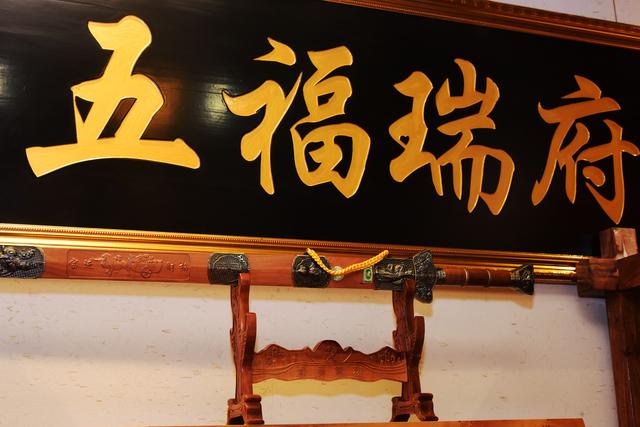 五福瑞府